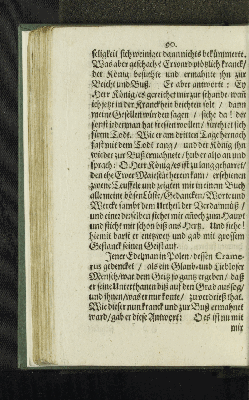 90.
seligkeit sich weiniger dann nichts bekümmerte.
Was aber geschachs Er ward plötzlich kranck/
der König besuchte und ermahnte ihn zur
Beicht und Buß. Er aber antworte: Ey
Herr König/ es gereichet mir zur schande/ wañ
ich jetzt in der Kranckheit beichten solt / dann
meine Gesellen würden sagen / siehe da! der
sonst jederman hat fressen wollen/ fürchtet sich
fürm Todt. Wie er am dritten Tage hernach
fast mit dem Todt rang/ und der König ihn
wieder zur Buß ermahnete/ hub er also an und
sprach: O Herr König/ es ist zu lang geharret/
den ehe Ewer Maiestät herein kam/ erschienen
zweene Teuffele und zeigten mir in einem Buch
alle meine bösen Lüste/ Gedancken/ Worte und
Werck sampt dem Urtheil der Verdamnüß /
und einer derselben sticht mir auch zum Haupt
und sticht mir schon biß ans Hertz. Und siehe!
hiemit darff er entzwey und gab mit grossem
Gestanck seinen Geist auf.
Jener Edelman in Polen/ dessen Crame-
rus gedencket / als ein Glaub- und Liebloser
Mensch/ war dem Geitz so gantz ergeben/ daß
er seine Unterthanen biß auf den Grad aussog/
und ihnen/ was er nur konte/ zu verdrieß that.
Wie dieser nun kranck und zur Buß ermahnet
ward/ gab er diese Antwort: Es ist nu mit
mir